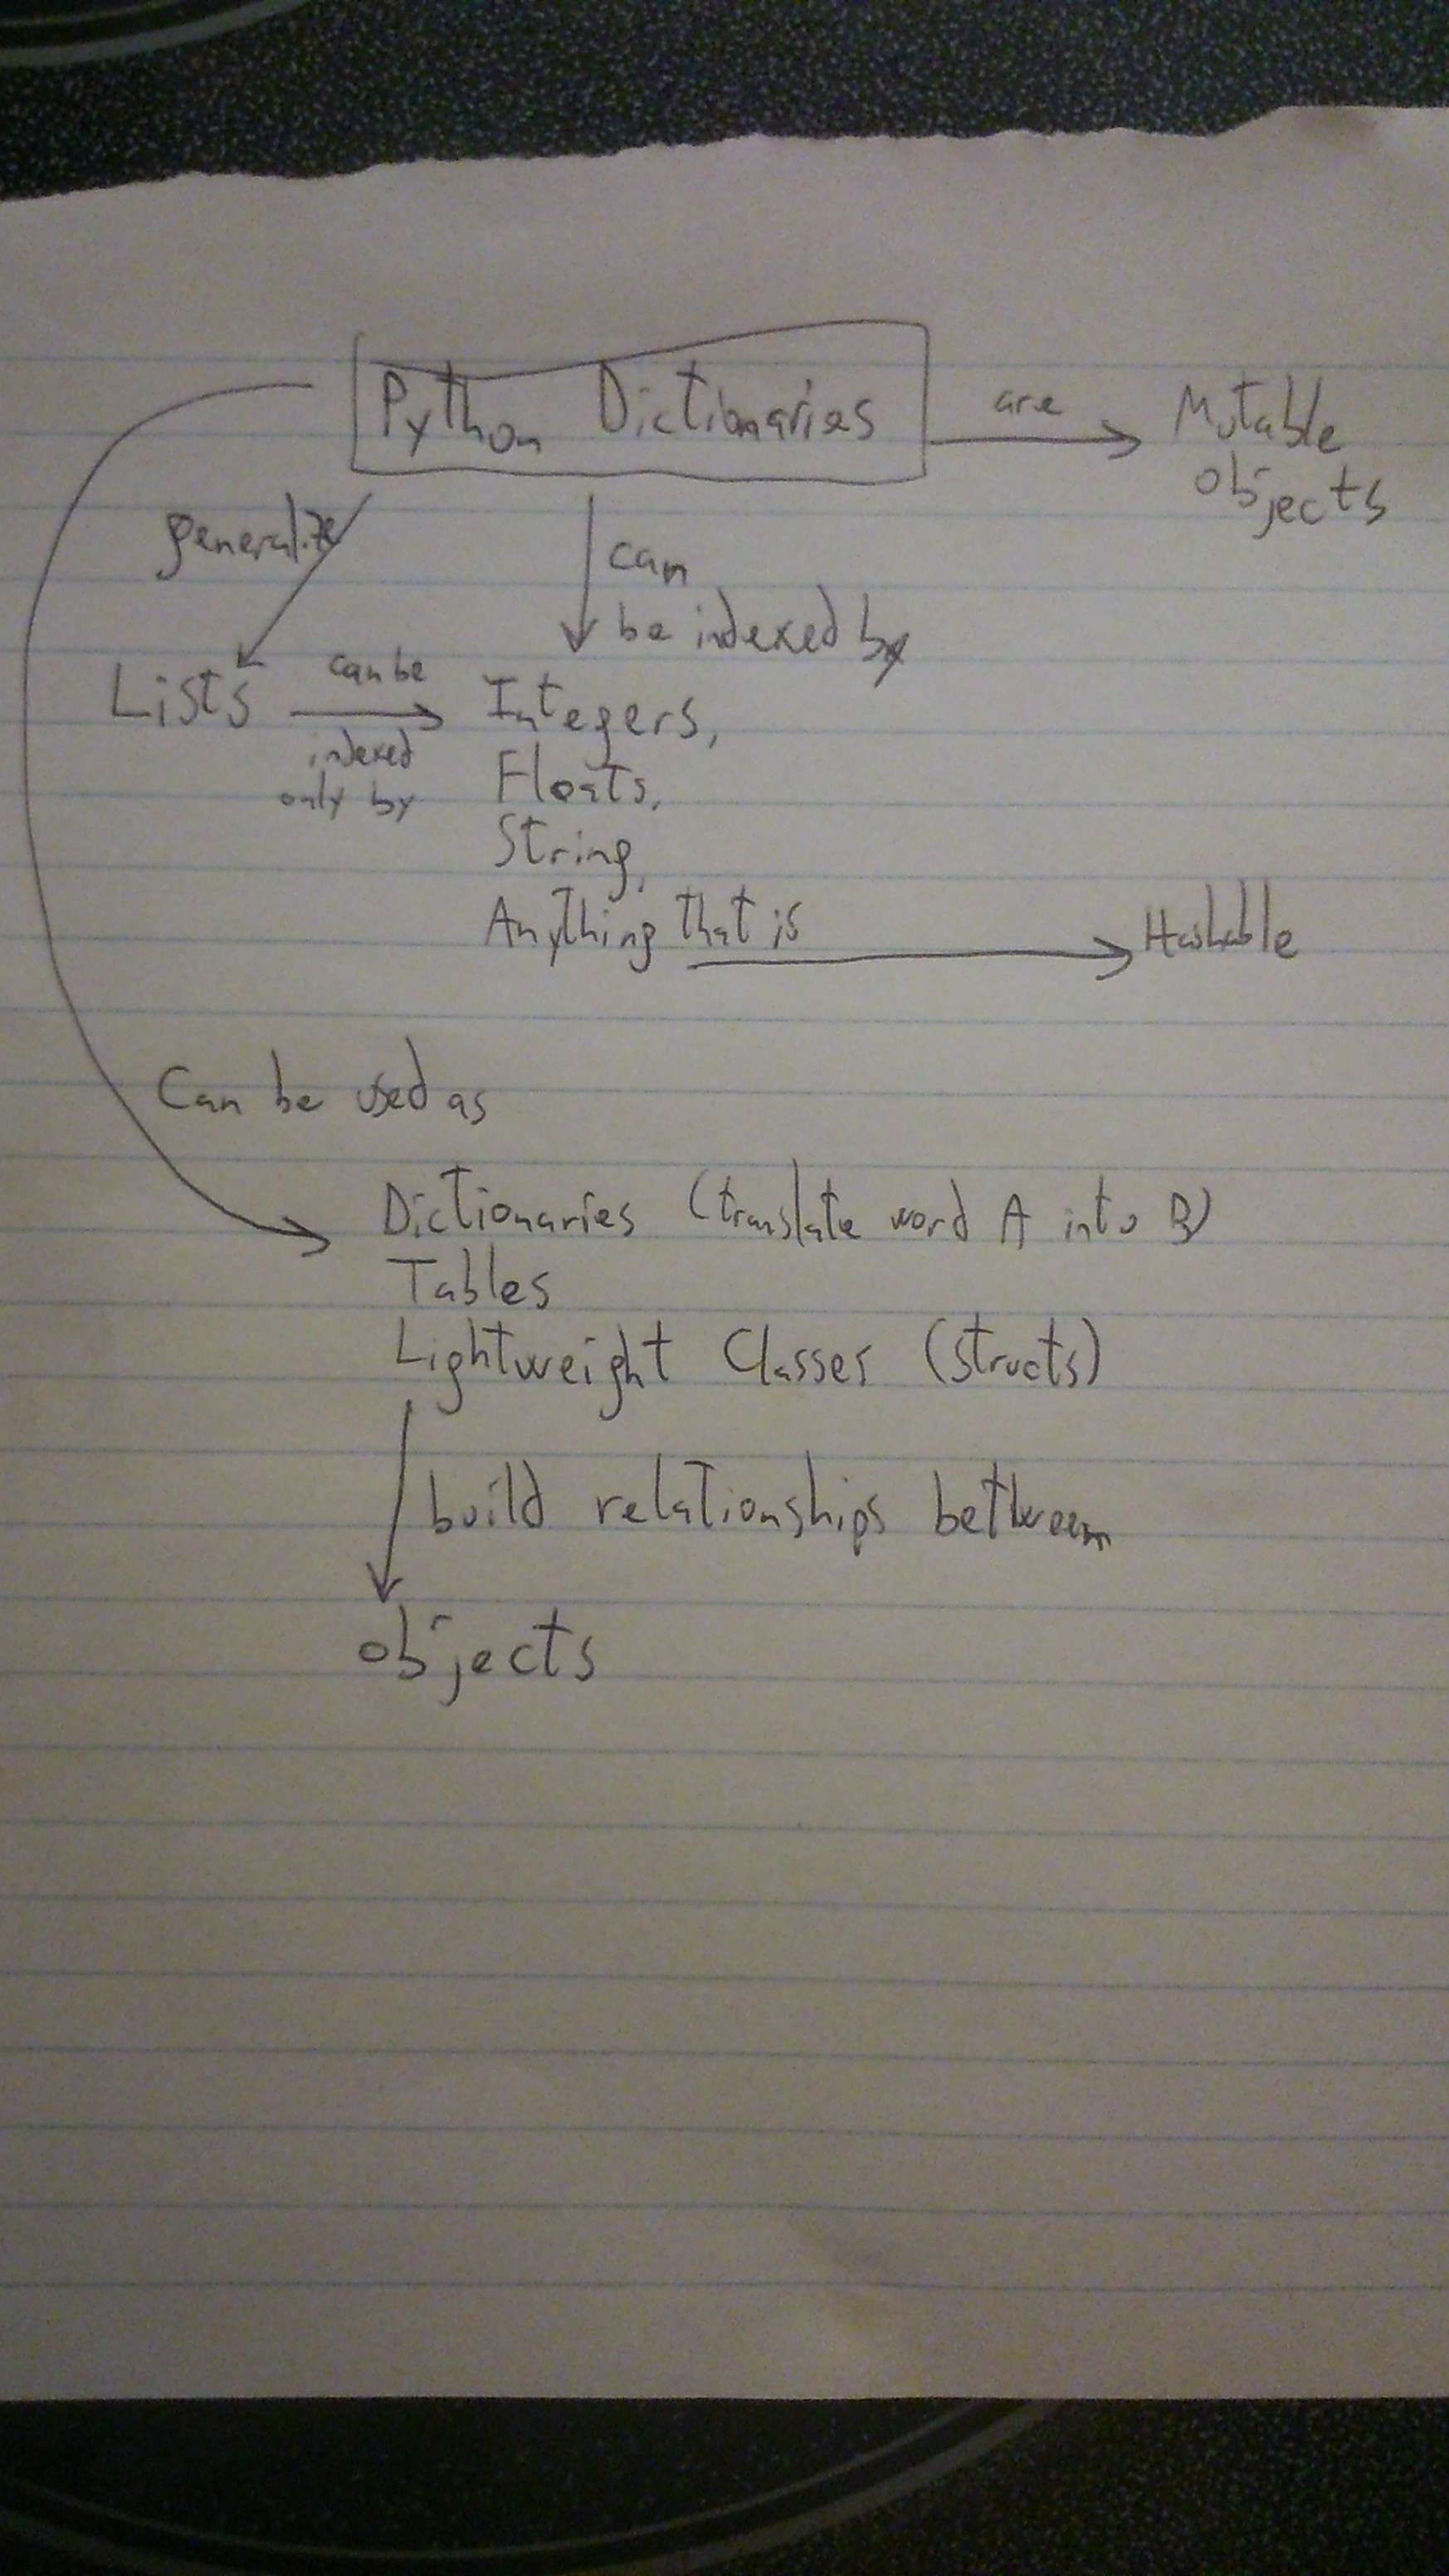 Python Dictionaries are Mutable
objects
generalize
can
be indexed by
Lists can be Integers,
indexed
only by
Floats,
String,
Anything that is Hashable
Can be used as
Dictionaries (translate word A into B)
Tables
Lightweight Classes (structs)
build relationships between
objects